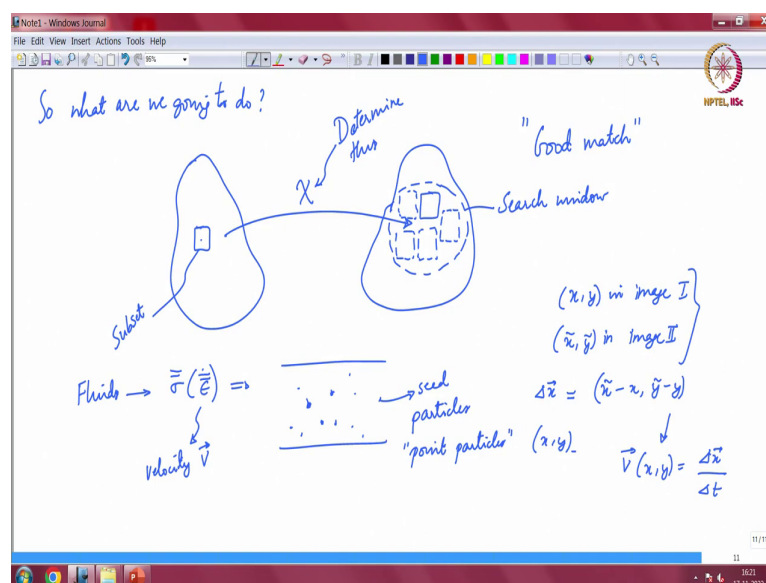 Note1 - Windows Journal
File Edit View Insert Actions Tools Help
95%
B I
NPTEL, IISc
So what are we going to do?
Determine
this
"Good match"
χ
Search window
Subset
(x,y) in image I
(x̃, ỹ) in image II
Fluids → σ̿ (ε̿̇) ⇒
seed
particles
Δx⃗ = (x̃-x, ỹ-y)
velocity V⃗
"point particles" (x,y)
V⃗ (x,y) = Δx⃗ / Δt
11/11
11
16:21